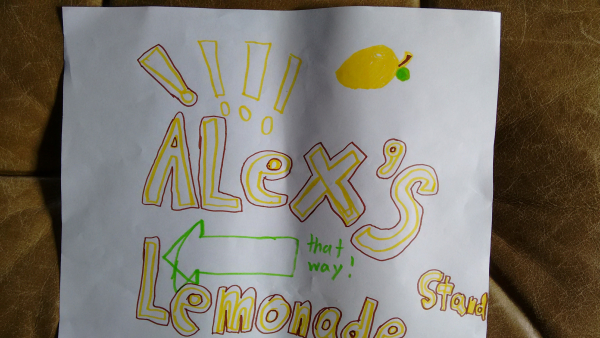 !!!!
ALex's
that
way!
Lemonade
Stand